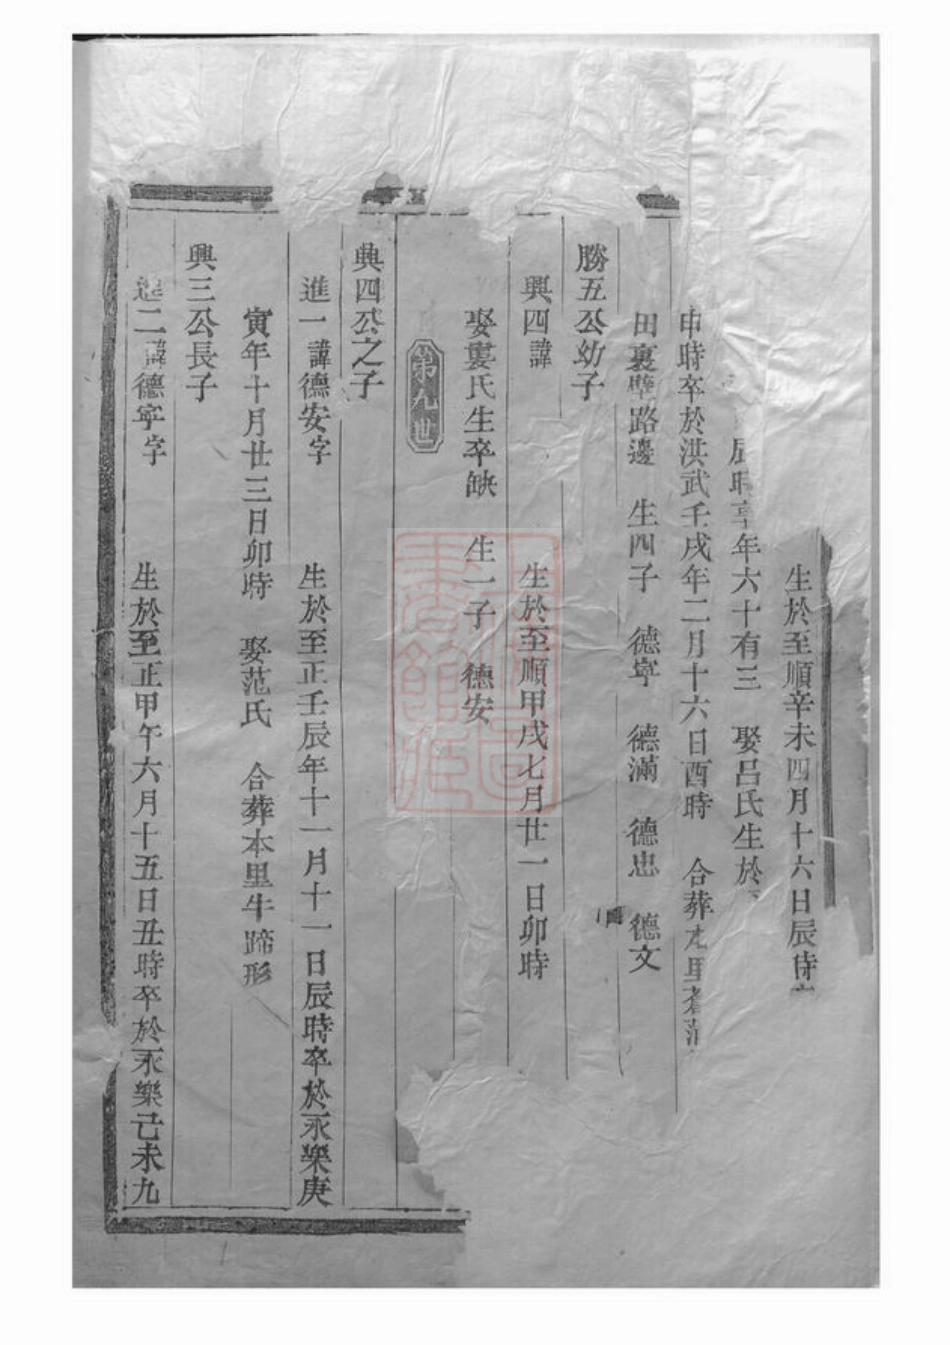 生於至順辛未四月十六日辰時
辰時享年六十有三　娶呂氏生於
申時卒於洪武壬戌年二月十六日酉時　合葬
田裏壟路邊　生四子　德寧　德滿　德忠　德文
勝五公幼子
興四諱　生於至順甲戌七月廿一日卯時
娶婁氏生卒缺　生一子　德安
第九世
興四公之子
進一諱德安字　生於至正壬辰年十一月十一日辰時卒於永樂庚
寅年十月廿三日卯時　娶范氏　合葬本里牛蹄形
興三公長子
進二諱德寧字　生於至正甲午六月十五日丑時卒於永樂己未九